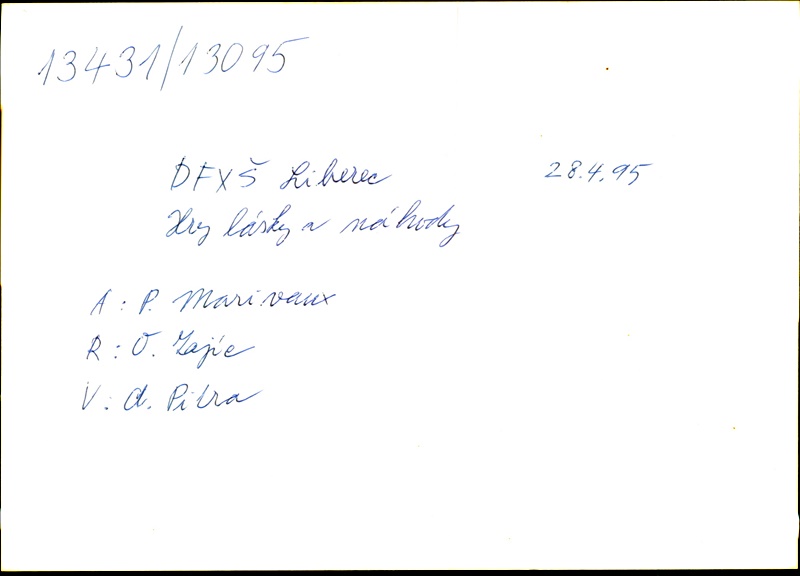 13431/13095
DFXŠ Liberec 28.4.95
Hry lásky a náhody
A: P. Marivaux
R: O. Zajíc
V: A. Pitra